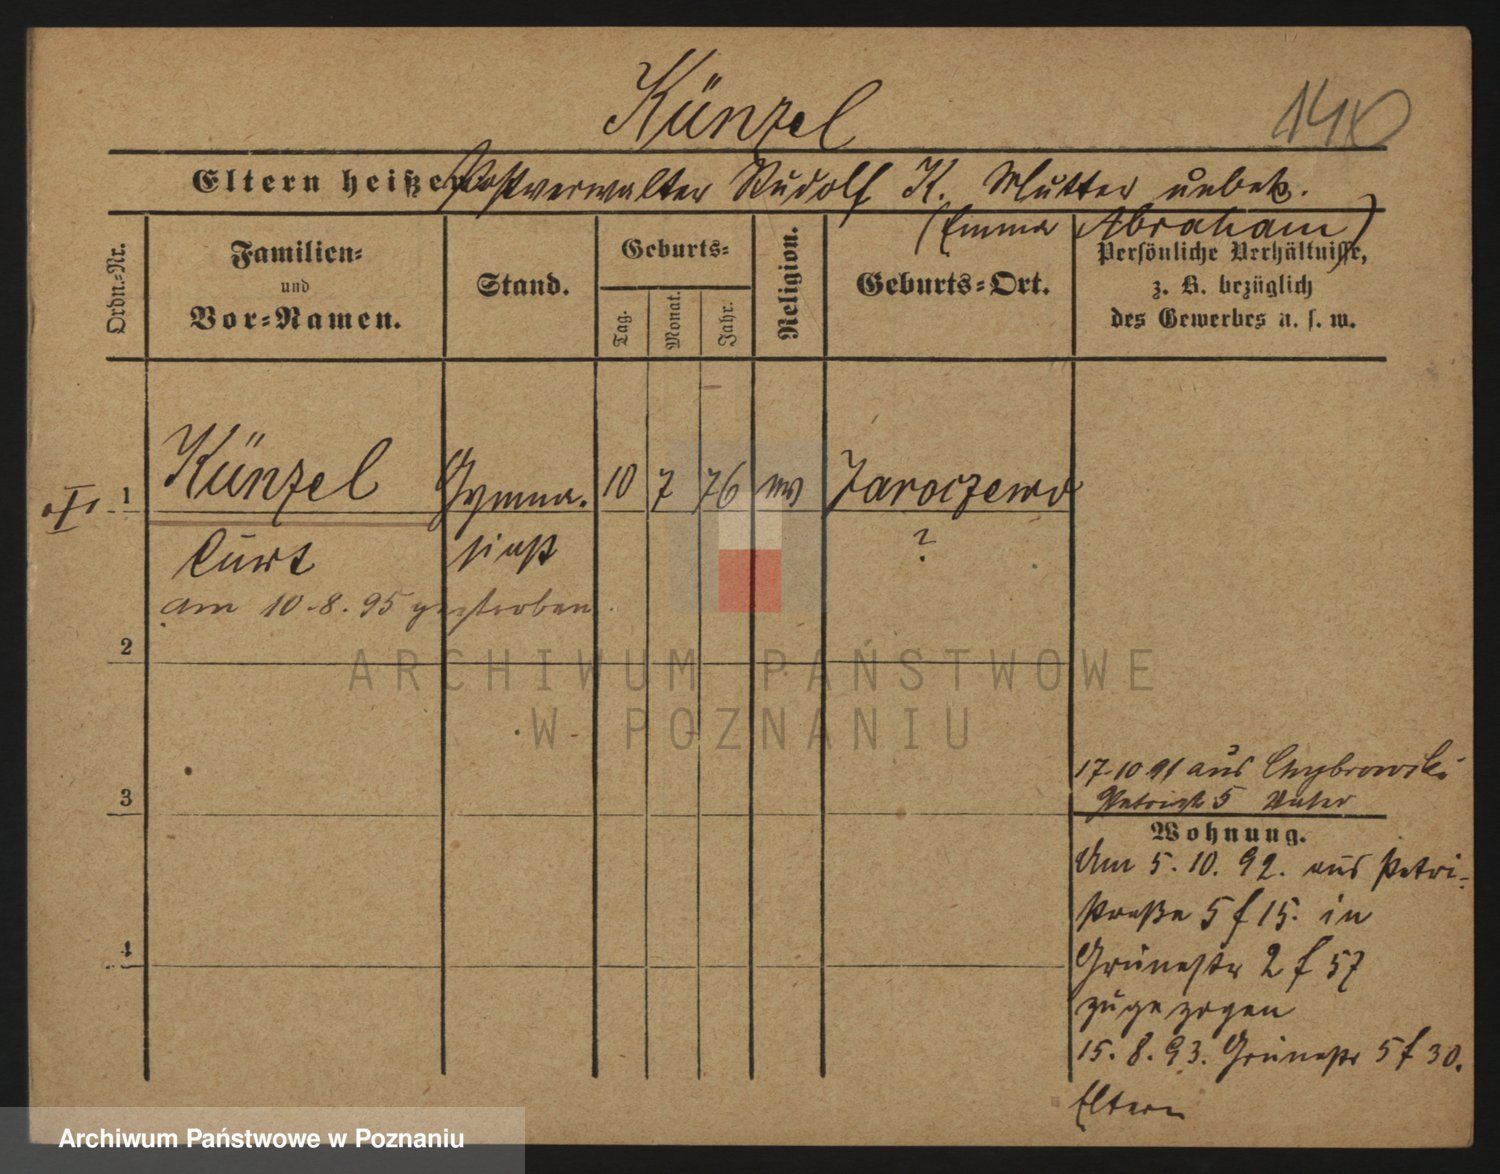 Künzel
140
Eltern heißen Postverwalter Rudolf K. Mutter unbek.
(Emma Abraham)
Ordn.-Nr.
Familien-
und
Vor-Namen.
Stand.
Geburts-
Tag.
Monat.
Jahr.
Religion.
Geburts-Ort.
Persönliche Verhältnisse,
z. B. bezüglich
des Gewerbes u. s. w.
1 Künzel Gymna- 10 7 76 ev Jaroczewo
Curt siast ?
am 10.8.95 gestorben.
2
3
4
17.10.91 aus
5
Wohnung.
Am 5. 10. 92. aus Petri-
straße 5 f 15. in
Grünestr 2 f 57
zugezogen
15. 8. 93. Grünestr 5 f 30.
Eltern
ARCHIWUM PAŃSTWOWE
W POZNANIU
Archiwum Państwowe w Poznaniu